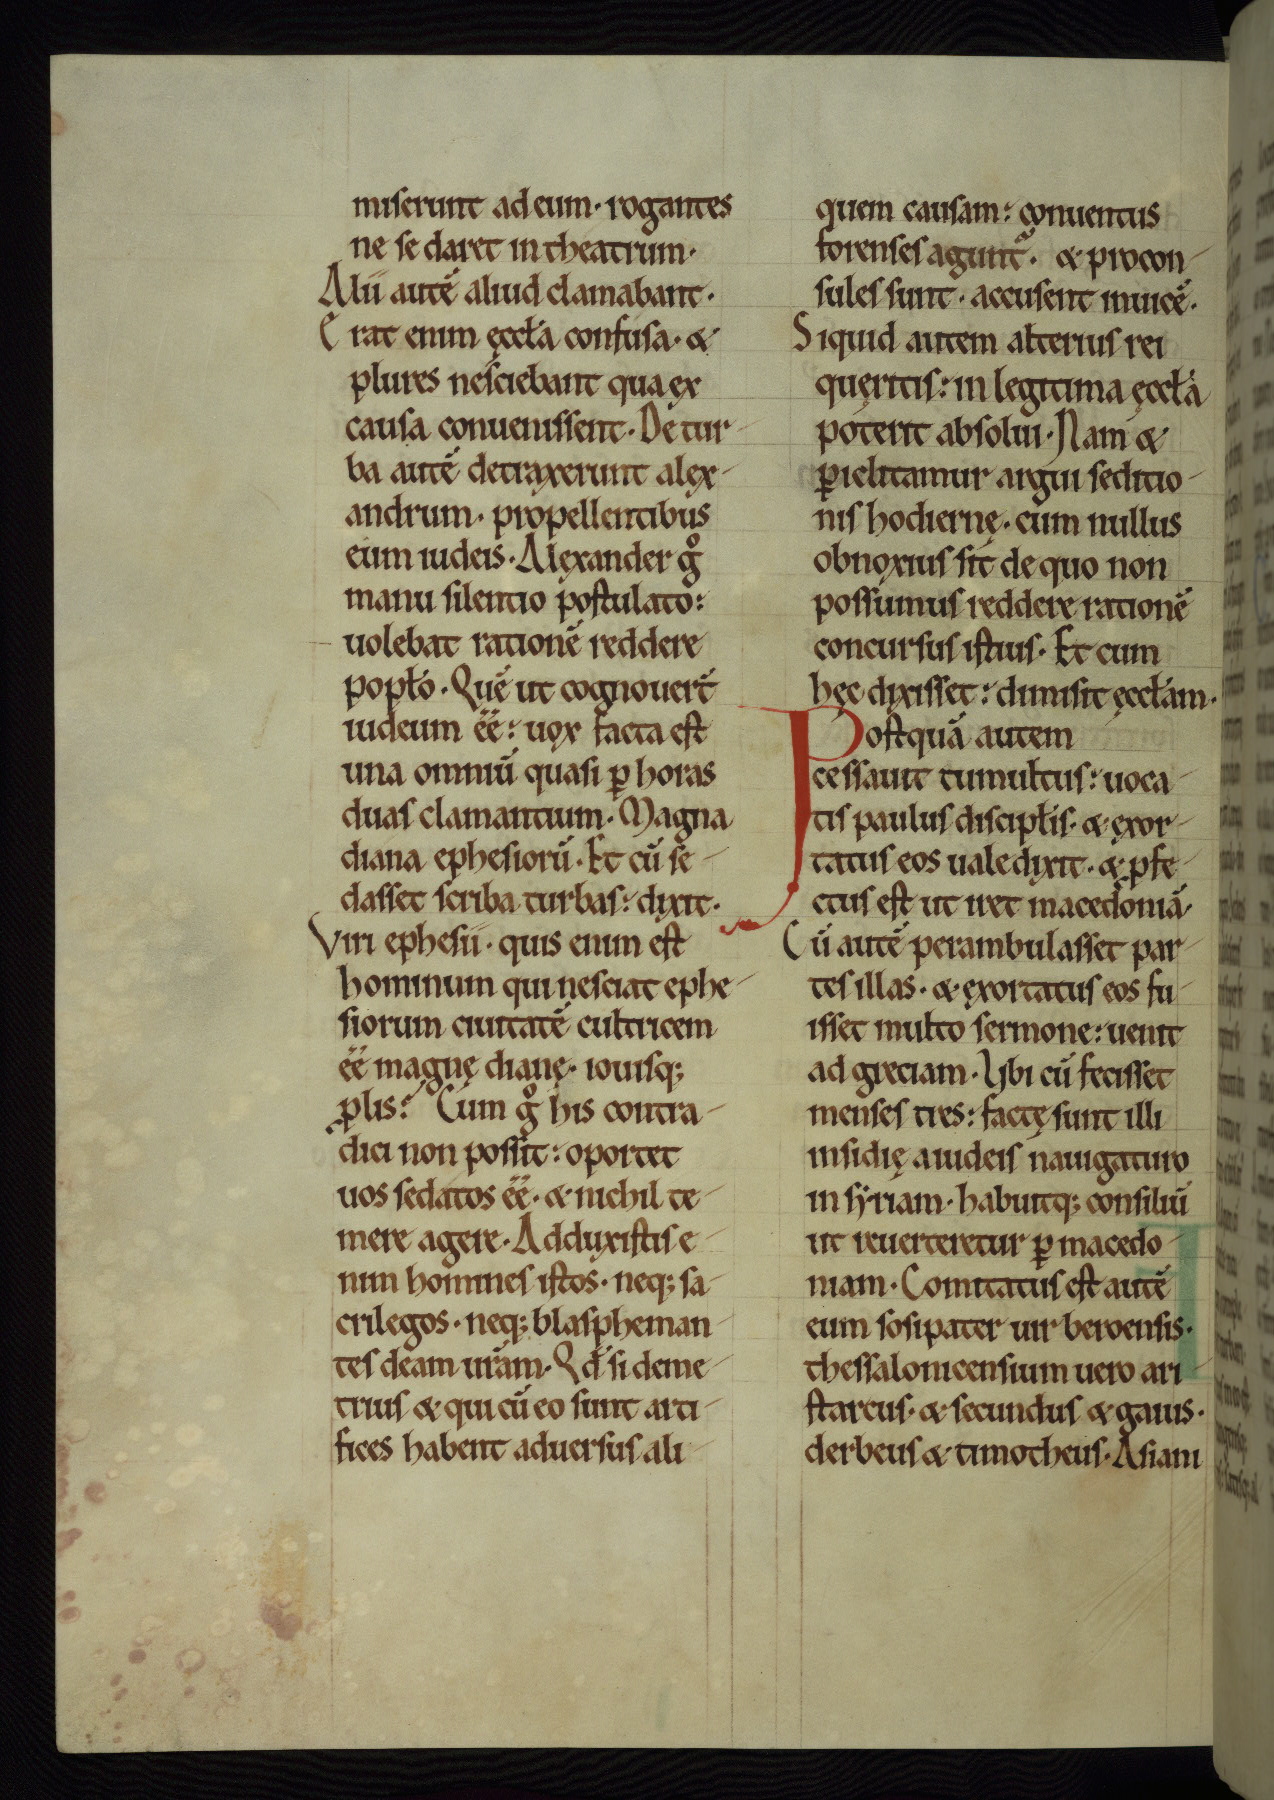 miserunt ad eum· rogantes
ne se daret in theatrum·
Alii autē aliud clamabant·
Erat enim ęccła confusa· &
plures nesciebant qua ex
causa conuenissent· De tur-
ba autē detraxerunt alex-
andrum· propellentibus
eum iudeis· Alexander gͦ
manu silentio postulato:
uolebat rationē reddere
popło· Quē ut cognouert̄
iudeum ēē: uox facta est
una omniū quasi ꝑ horas
duas clamantium· Magna
diana ephesiorū· Et cū se-
dasset scriba turbas: dixit·
Viri ephesii· quis enim est
hominum qui nesciat ephe-
siorum ciuitatē cultricem
ēē magnę dianę· iouisq;
ꝓlis: Cum gͦ his contra-
dici non possit: oportet
uos sedatos ēē· & nichil te-
mere agere· Adduxistis e-
nim homines istos· neq; sa-
crilegos· neq; blapheman-
tes deam ur̄am· Qd̄ si deme-
trius & qui cū eo sunt arti-
fices habent aduersus ali-
quem causam: conuentus
forenses agunt᷒· & procon-
sules sunt· accusent inuicē·
Siquid autem alterius rei
quęritis: in legitima ęccła
poterit absolui· Nam &
ꝑiclitamur argui seditio-
nis hodiernę· cum nullus
obnoxius sit de quo non
possumus reddere rationē
concursus istius· Et cum
hęc dixisset: dimisit ęccłam·
Postquā autem
cessauit tumultus: uoca-
tis paulus discipłis· & exor-
tatus eos uale dixit· & ꝓfe-
ctus est ut iret macedoniā·
Cū autē perambulasset par-
tes illas· & exortatus eos fu-
isset multo sermone: uenit
ad greciam· Ubi cū fecisset
menses tres: factę sunt illi
insidię a iudeis nauigaturo
in syriam· habuitq; consiliū
ut reuerteretur ꝑ macedo-
niam· Comitatus est autē
eum sosipater uir beroensis·
thessalonicensium uero ari-
starcus· & secundus & gaius·
derbeus & timotheus· Asiani